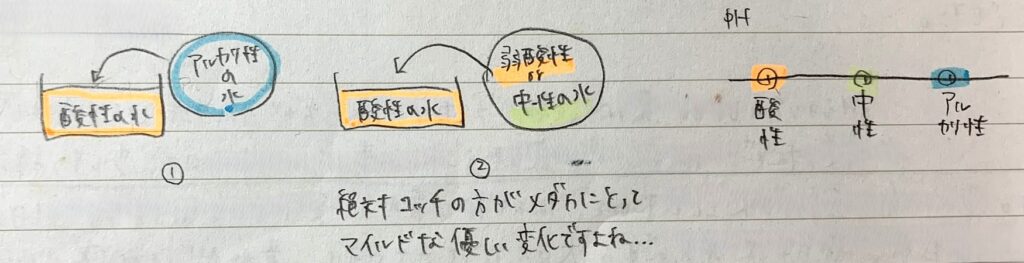 pH
アルカリ性
の
水
酸性の水
①
弱酸性
or
中性の水
酸性の水
②
酸
性
中
性
アル
カリ性
絶対コッチの方がメダカにとって
マイルドな優しい変化ですよね…